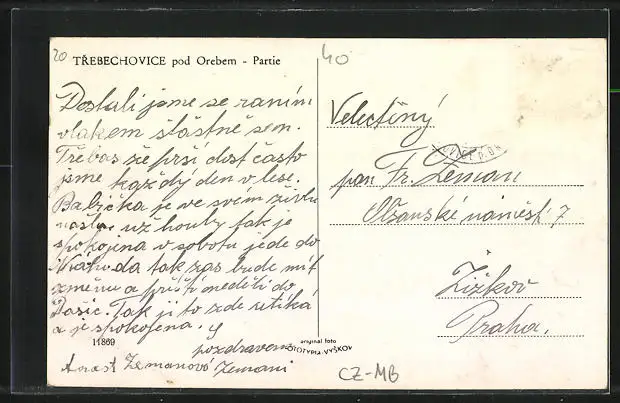 20
40
TŘEBECHOVICE pod Orebem - Partie
Dostali jsme se raním
vlakem šťastně sem.
Třebas že prší dost často
jsme každý den v lese.
Babička je ve svém živlu
našla už houby tak je
spokojena v sobotu jede do
da tak zas bude mít
změnu a příští neděli do
Dašic. Tak jí to zde utíká
a je spokojena. S
pozdravem
Zemanovo Zemani
11869
original foto
FOTOTYPIA-VYŠKOV
Velectěný
pan Fr. Zeman
Olšanské náměst. 7
Žižkov
Praha.
CZ-MB